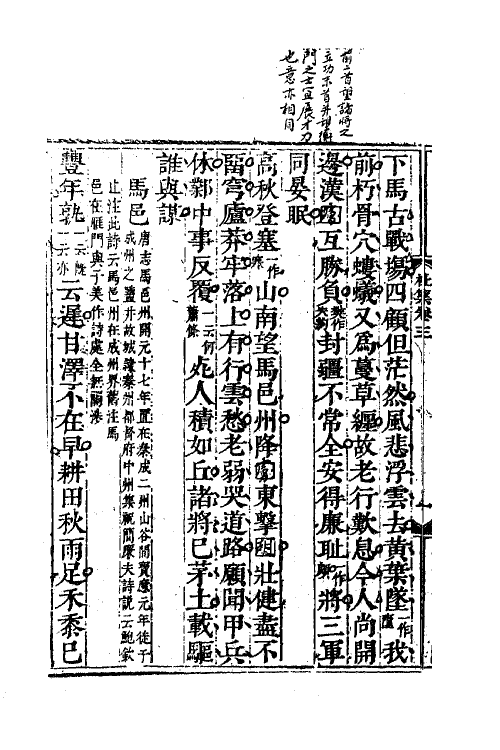 前二首望諸將之
立功不首并望衡
門之士宜展才力
也意亦相同
杜集卷三
下馬古戰場四顧但茫然風悲浮雲去黃葉墜一作隨我
前朽骨穴螻蟻又爲蔓草纏故老行歎息今人尚開
邊漢囗互勝負封疆不常全安得廉耻一作頗將三軍
同晏眠
高秋登塞一作寒山南望馬邑州降囗東擊囗壯健盡不
畱穹廬莽牢落上有行雲愁老弱哭道路願聞甲兵
休鄴中事反覆一云何蕭條死人積如丘諸將已茅土載驅
誰與謀
馬邑唐志馬邑州開元十七年置在秦成二州山谷間寶應元年徙于
成州之鹽井故城隸秦州都督府中州集祝簡廉夫詩說云鮑欽
止注此詩云馬邑州在成州界舊注馬
邑在雁門與子美作詩處全無關涉
豐年孰一云旣一云亦云遲甘澤不在早耕田秋雨足禾黍已